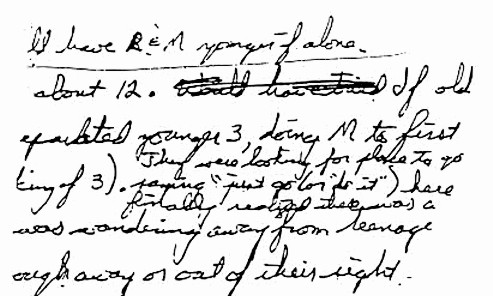 ld have R & M younger if alone.
about 12. If old
separated younger 3, doing M to first
They were looking for place to go
king of 3). saying "just go (or "do it") here
finally realized there was a
was wandering away from teenage
ough away or out of their sight.